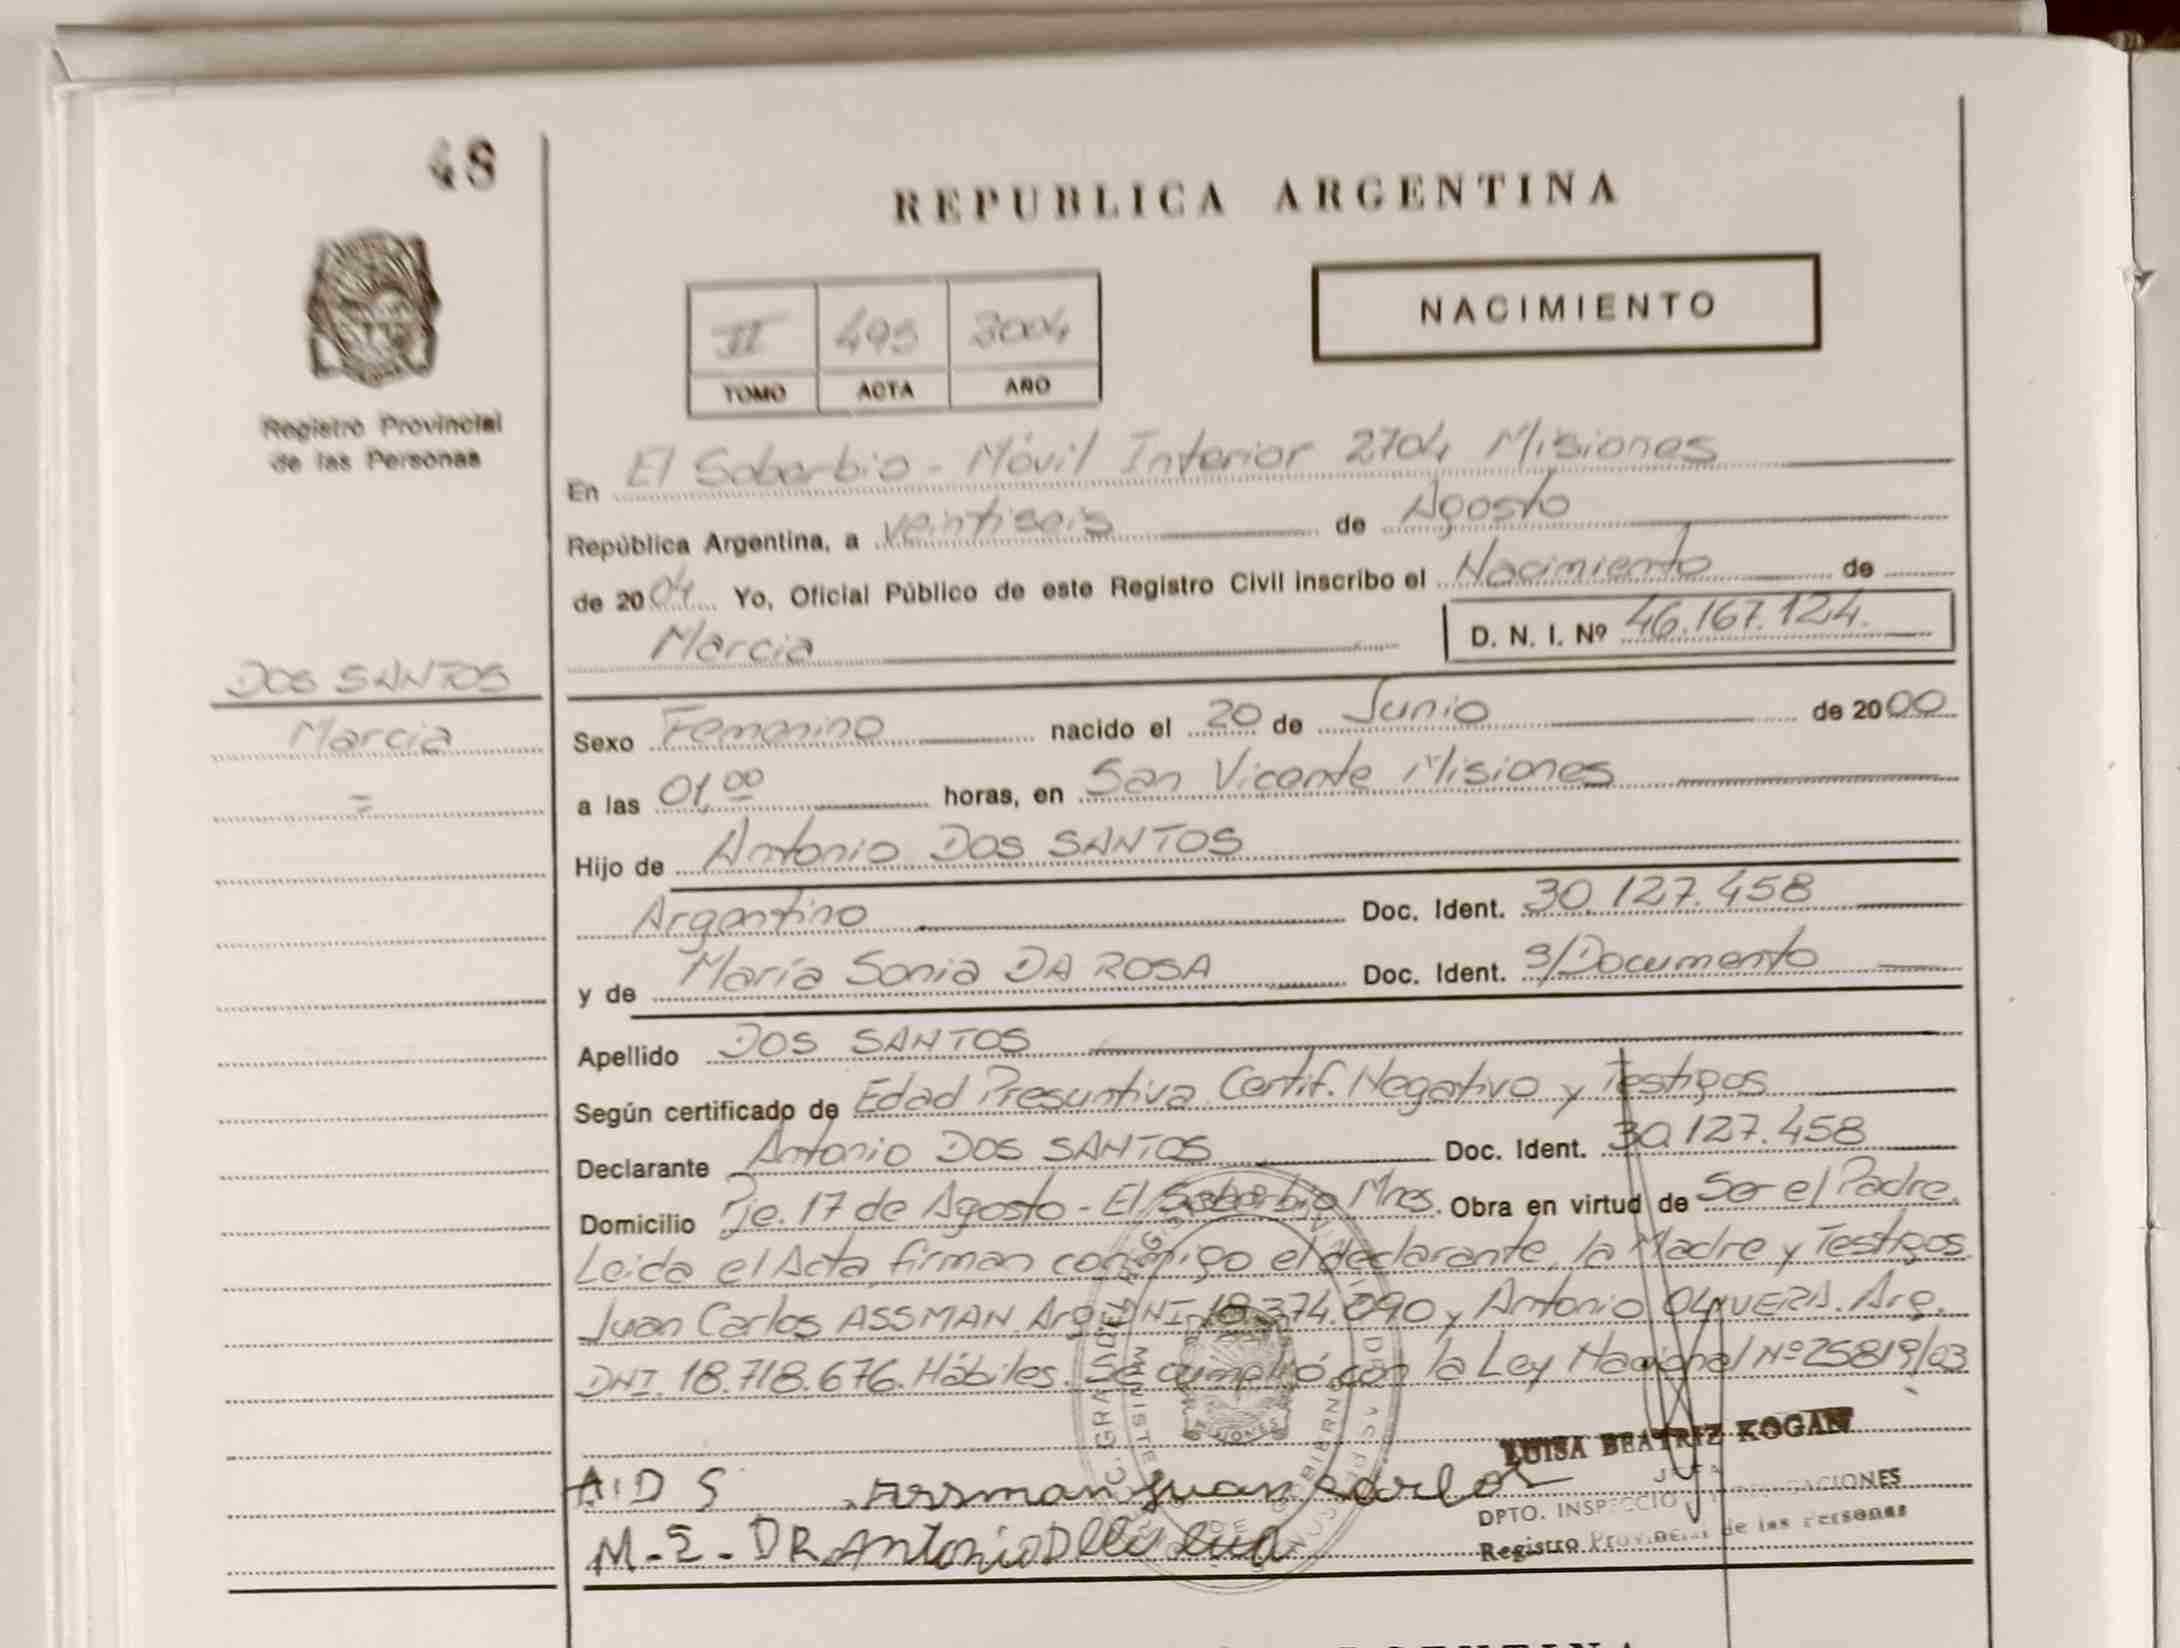 48
REPUBLICA ARGENTINA
NACIMIENTO
II 495 2004
TOMO ACTA AÑO
Registro Provincial
de las Personas
En El Soberbio - Móvil Interior 2704 Misiones
República Argentina, a veintiseis de Agosto
de 2004 Yo, Oficial Público de este Registro Civil inscribo el Nacimiento de
Marcia D. N. I. Nº 46.167.124.
DOS SANTOS
Marcia
=
Sexo Femenino nacido el 20 de Junio de 2000
a las 01,00 horas, en San Vicente Misiones
Hijo de Antonio DOS SANTOS
Argentino Doc. Ident. 30.127.458
y de María Sonia DA ROSA Doc. Ident. S/Documento
Apellido DOS SANTOS
Según certificado de Edad Presuntiva. Certif. Negativo y Testigos
Declarante Antonio DOS SANTOS Doc. Ident. 30.127.458
Domicilio Pje. 17 de Agosto - El Soberbio Mnes. Obra en virtud de Ser el Padre.
Leida el Acta, firman conmigo el declarante, la Madre y Testigos
Juan Carlos ASSMAN. Arg. DNI. 18.374.090 y Antonio OLIVERA. Arg.
DNI. 18.718.676. Hábiles. Se cumplió con la Ley Nacional Nº 25819/03
LUISA BEATRIZ KOGAN
JEFA
A.D S Assman Juan Carlos
DPTO. INSPECCIO
M-S-DR Antonio
Registro Provincial de las Personas